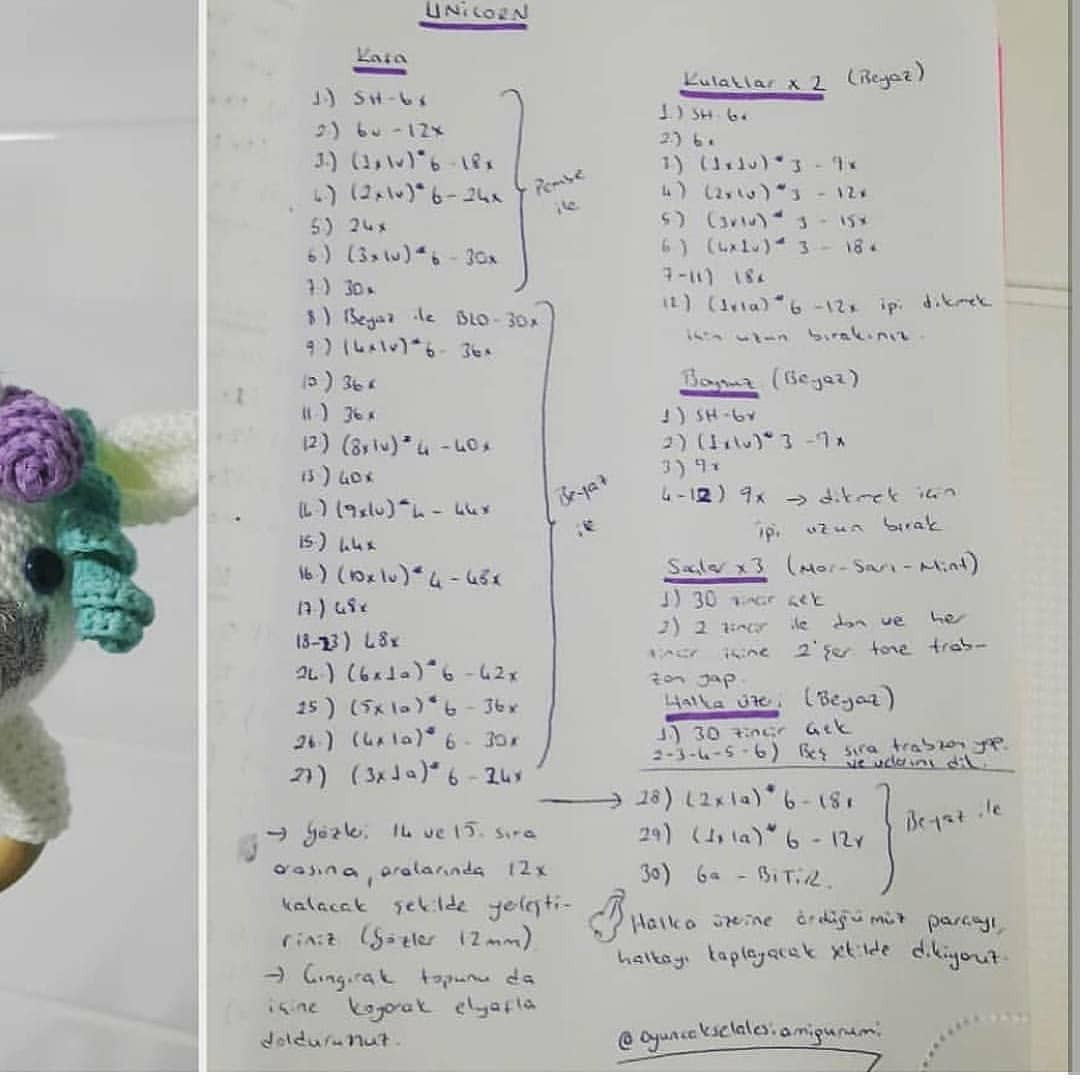 UNICORN
Kafa
1.) SH-6x
2.) 6v -12x
3.) (1x1v)*6 -18x
4.) (2x1v)*6 - 24x
5.) 24x
6.) (3x1v)*6 - 30x
7.) 30x
Pembe
ile
8.) Beyaz ile BLO-30x
9.) (4x1v)*6 - 36x
10.) 36x
11.) 36x
12) (8x1v)*4 -40x
13.) 40x
14.) (9x1v)*4 - 44x
15.) 44x
16.) (10x1v)*4 -48x
17.) 48x
18-23) 48x
24.) (6x1a)*6 -42x
25) (5x1a)*6 - 36x
26.) (4x1a)*6 - 30x
27) (3x1a)*6 - 24x
Beyaz
ile
→ Gözleri 14 ve 15. sıra
arasına, aralarında 12x
kalacak şekilde yerleşti-
riniz (Gözler 12mm)
→ Çıngırak topunu da
içine koyarak elyafla
doldurunuz.
Kulaklar x 2 (Beyaz)
1.) SH-6x
2.) 6x
3) (1x1v)*3 - 9x
4) (2x1v)*3 - 12x
5) (3x1v)*3 - 15x
6.) (4x1v)*3 - 18x
7-11) 18x
12.) (1x1a)*6 -12x ipi dikmek
için uzun bırakınız.
Boynuz (Beyaz)
1) SH-6x
2) (1x1v)*3 -9x
3) 9x
4-12) 9x → dikmek için
ipi uzun bırak
Saçlar x3 (Mor-Sarı-Mint)
1) 30 zincir çek
2) 2 zincir ile dön ve her
zincir içine 2'şer tane trab-
zan yap.
Halka üzeri (Beyaz)
1.) 30 zincir çek
2-3-4-5-6) Beş sıra trabzan yap.
ve uçlarını dik.
→ 28) (2x1a)*6 -18x
29) (1x1a)*6 - 12x
30) 6a - BİTİR.
Beyaz ile
Halka üzerine ördüğümüz parçayı,
halkayı kaplayacak şekilde dikiyoruz.
@oyuncakselalesi.amigurumi